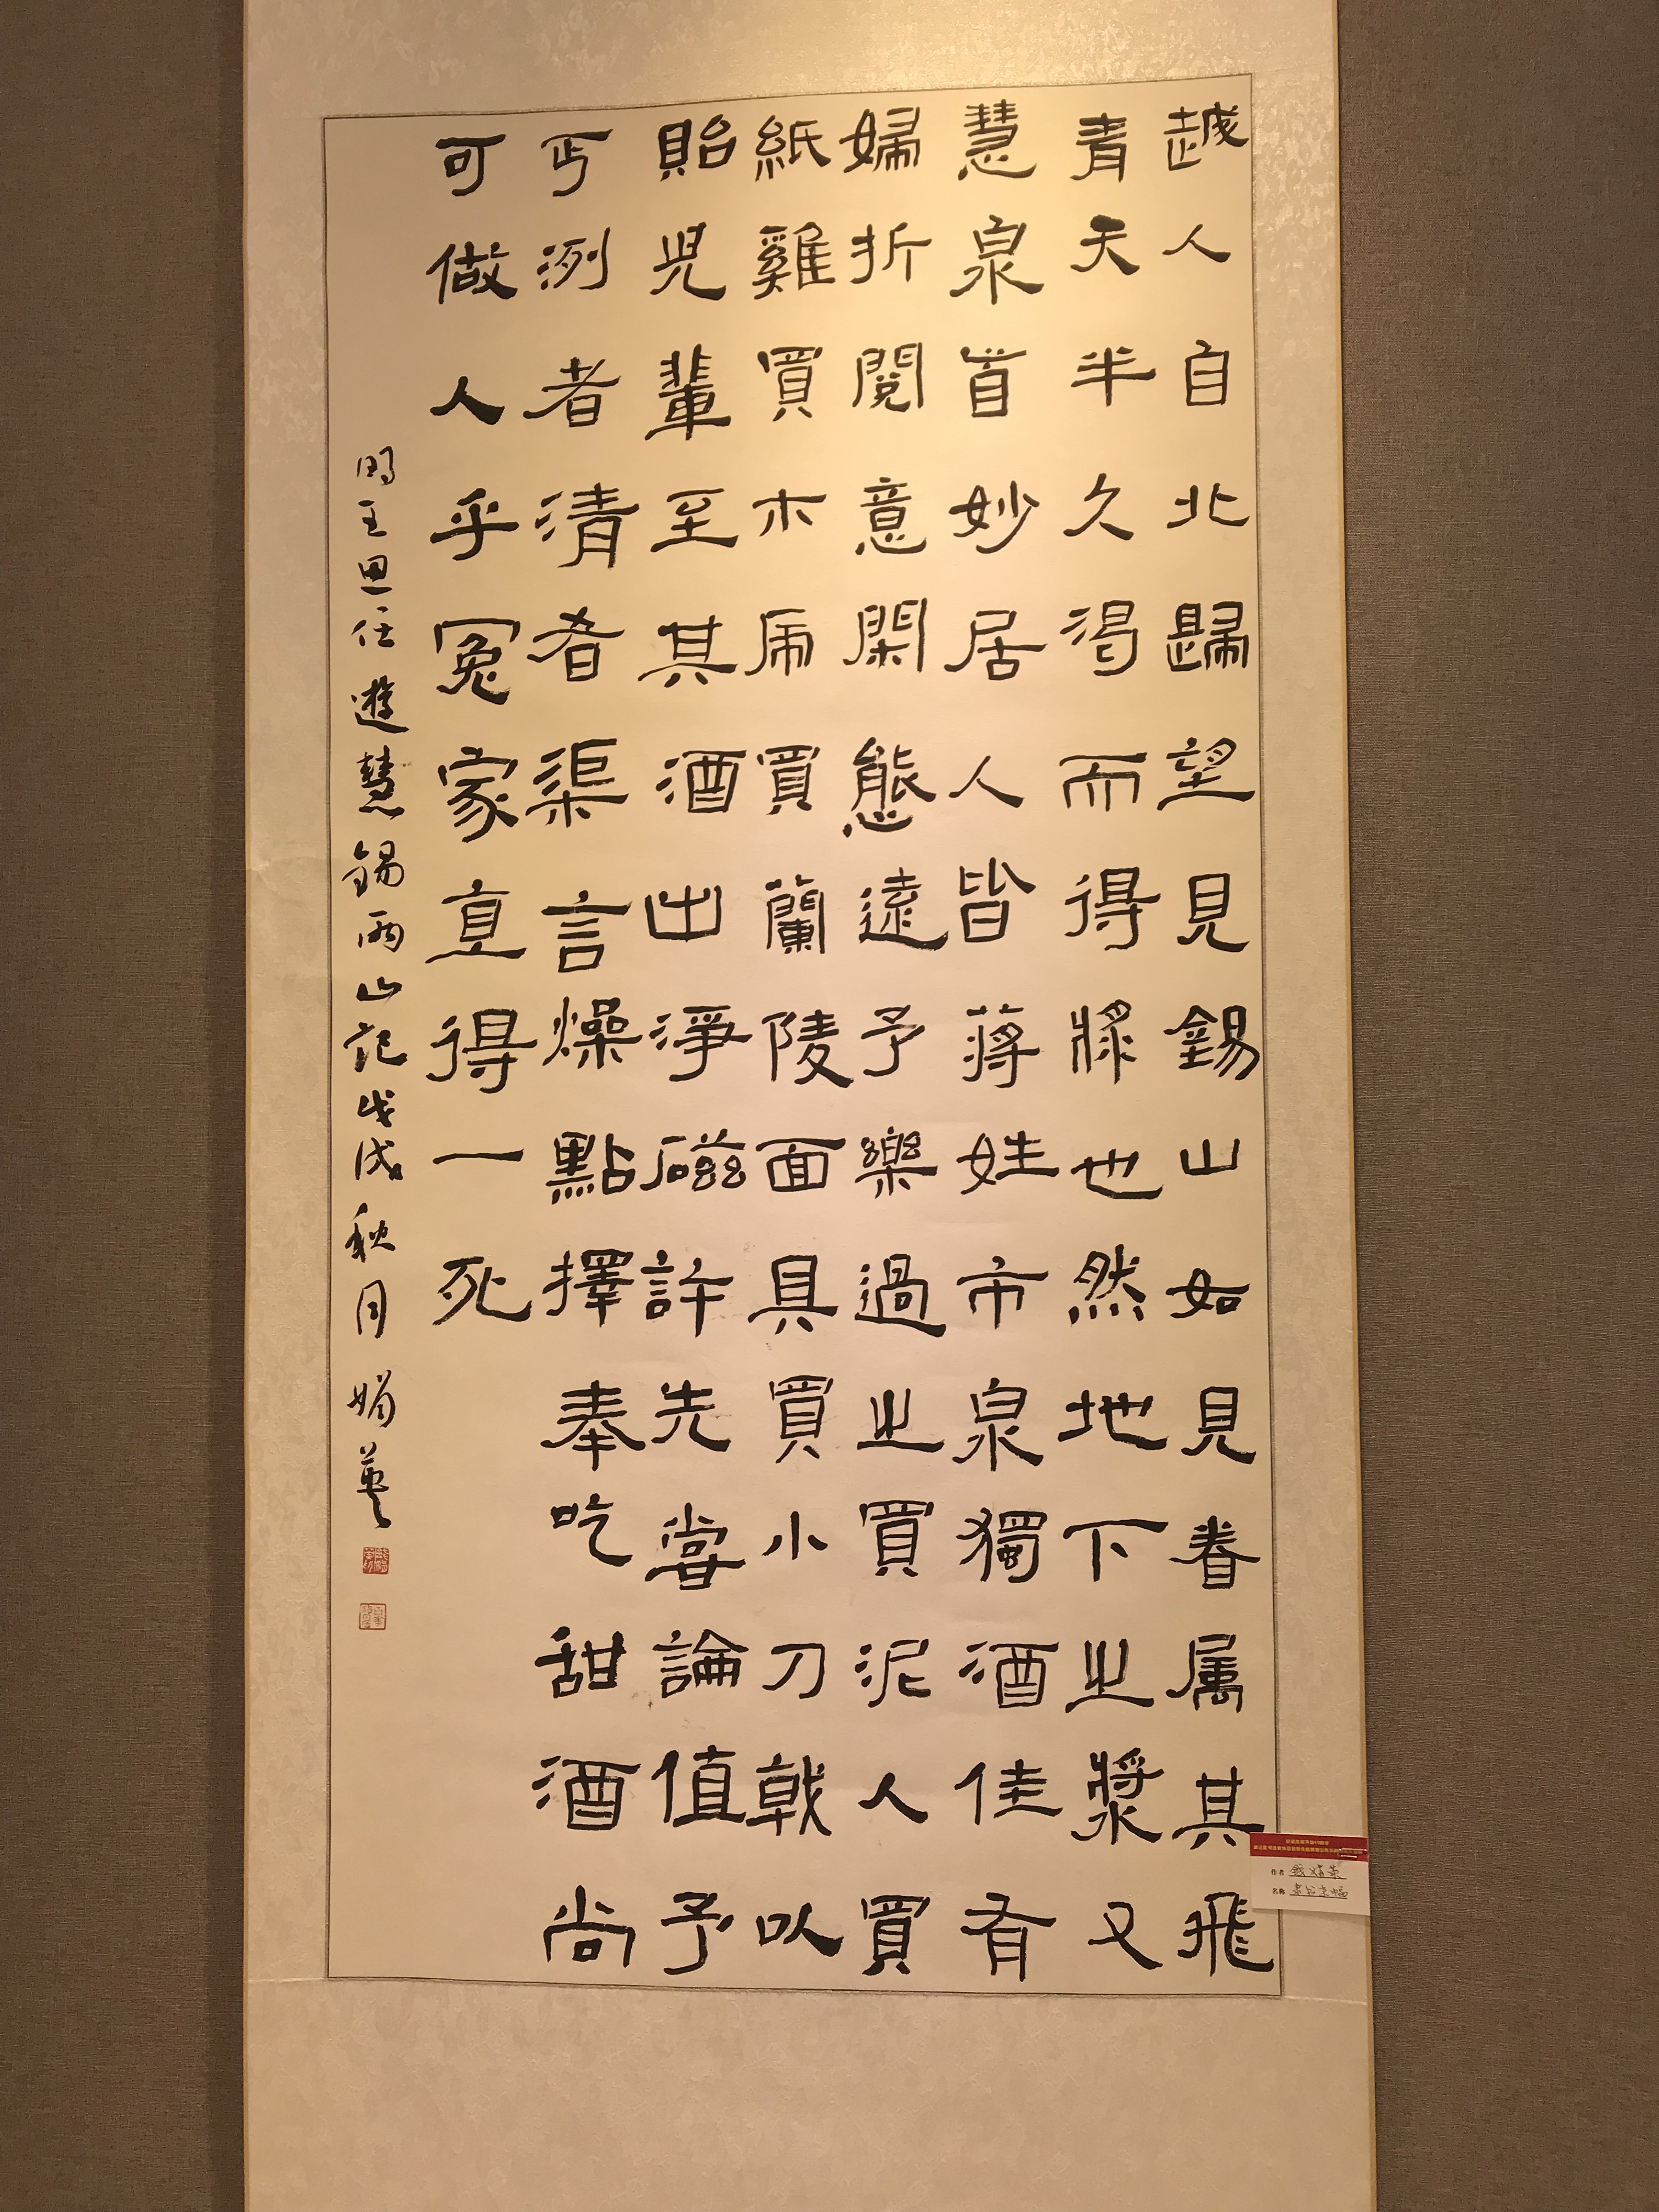 越人自北歸望見錫山如見眷属其飛
青天半久渴而得漿也然地下之漿又
慧泉首妙居人皆蔣姓市泉獨酒佳有
婦折閱意閑態遠予樂過之買泥人買
紙雞買木虎買蘭陵面具買小刀戟以
貽兒輩至其酒出淨磁許先嘗論值予
丐洌者清者渠言燥點擇奉吃甜酒尚
可做人乎冤家直得一死
明王思任遊慧錫兩山記戊戌秋月娟英
作者
名称 隶书条幅